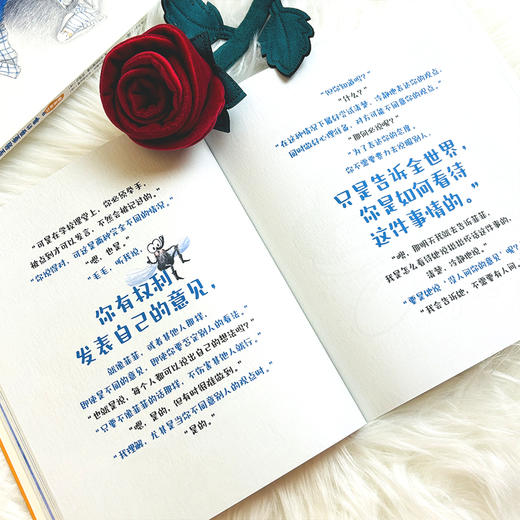 "可是在学校课堂上，你必须举手，
被点到才可以发言，不然会被记过的。"
"你说得对，可这是两种完全不同的情况。"
"嗯，也是。"
"毛毛，听我说，
你有权利
发表自己的意见，
就像菲菲，或者其他人那样，
即使是不同的意见，即使你要否定别人的看法。"
"也就是说，每个人都可以说出自己的想法吗？"
"只要不像菲菲的爸那样，不伤害其他人就行。"
"嗯，是的，但有时很难做到。"
"我理解，尤其是当你不同意别人的观点时。"
"是的。"
"你知道吗？"
"什么？"
"在这种情况下最好尝试清楚、冷静地表达你的观点，
同时做好心理准备，对方可能不同意你的观点。"
"那何必说呢？"
"为了表达你的态度，
你不需要费力去说服别人，
只是告诉全世界，
你是如何看待
这件事情的。"
"嗯，那明天我就去告诉菲菲，
我是怎么看待她说出那些话这件事的，
清楚、冷静地说。"
"要是她说，没人问你的意见，呢？"
"我会告诉她，不需要有人问。"